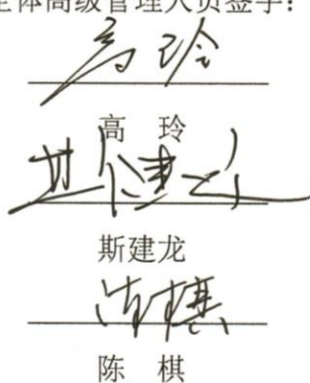 全体高级管理人员签字：
高玲
高 玲
斯建龙
斯建龙
陈棋
陈 棋